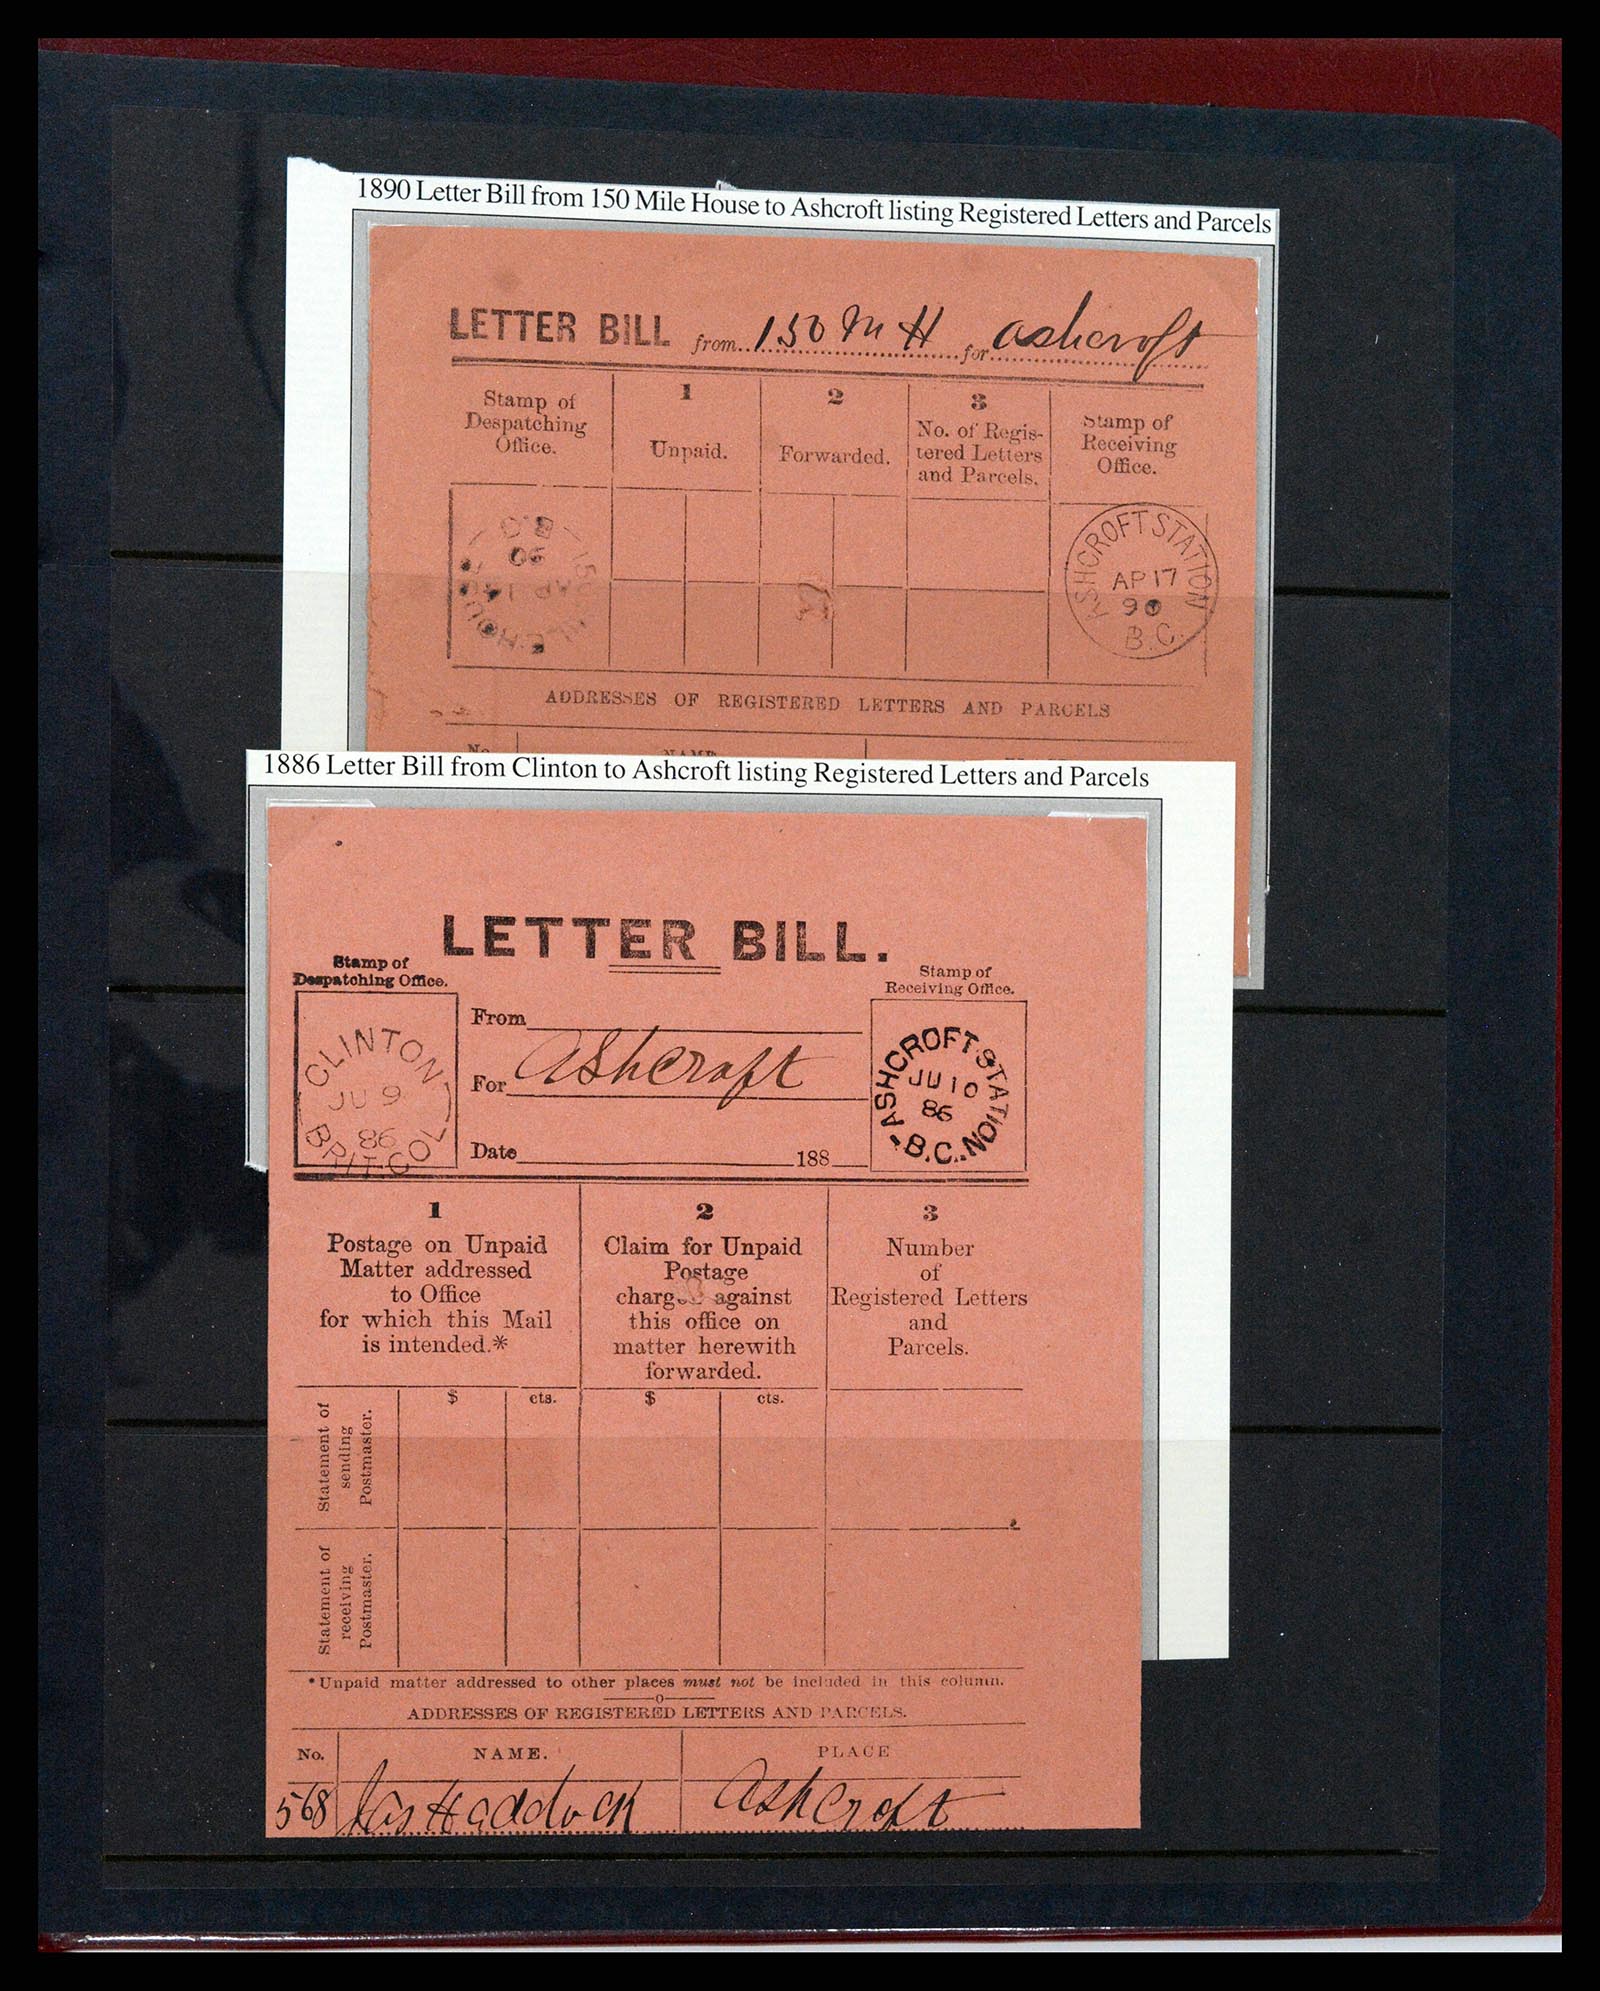 1890 Letter Bill from 150 Mile House to Ashcroft listing Registered Letters and Parcels
LETTER BILL from 150 M H for Ashcroft
Stamp of
Despatching
Office.
1
Unpaid.
2
Forwarded.
3
No. of Regis-
tered Letters
and Parcels.
Stamp of
Receiving
Office.
B.C
90
ASHCROFT STATION
AP 17
90
B.C.
ADDRESSES OF REGISTERED LETTERS AND PARCELS
No. NAME
1886 Letter Bill from Clinton to Ashcroft listing Registered Letters and Parcels
LETTER BILL.
Stamp of
Despatching Office.
Stamp of
Receiving Office.
CLINTON
JU 9
86
BRIT. COL
From
For Ashcroft
Date 188
ASHCROFT STATION
JU 10
86
B.C.
1
Postage on Unpaid
Matter addressed
to Office
for which this Mail
is intended.*
2
Claim for Unpaid
Postage
charged against
this office on
matter herewith
forwarded.
3
Number
of
Registered Letters
and
Parcels.
$ cts. $ cts.
Statement of
sending
Postmaster.
Statement of
receiving
Postmaster.
*Unpaid matter addressed to other places must not be included in this column.
o
ADDRESSES OF REGISTERED LETTERS AND PARCELS.
No. NAME. PLACE
568 Jas Haddock Ashcroft